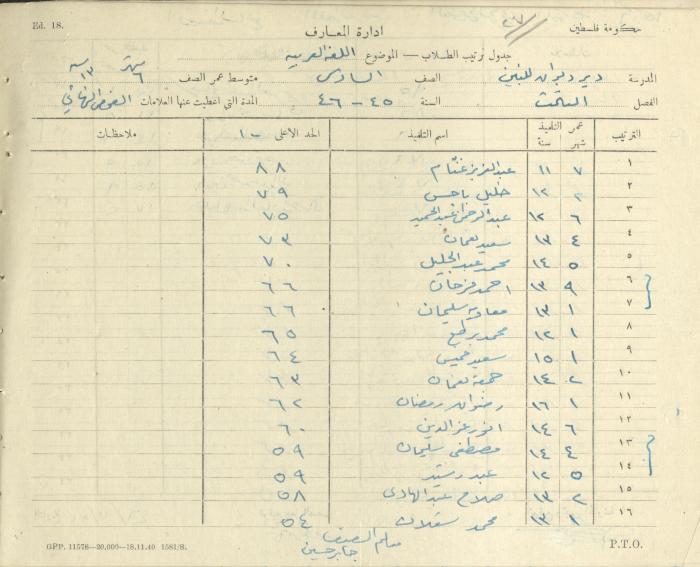 Ed. 18.
٢٧
حكومة فلسطين
ادارة المعارف
جدول ترتيب الطلاب — الموضوع اللغة العربية
المدرسة دير ديوان للبنين الصف السادس متوسط عمر الصف شهر ٦ سنة ١٣
الفصل الثالث السنة ٤٥ - ٤٦ المدة التي اعطيت عنها العلامات الفحص النهائي
الترتيب عمر التلميذ شهر سنة اسم التلميذ الحد الاعلى ١٠٠ ملاحظات
١ ٧ ١١ عبد العزيز غنام ٨٨
٢ ٢ ١٢ خليل ياسين ٧٩
٣ ٦ ١٢ عبد الرحمن عبد الحميد ٧٥
٤ ٤ ١٣ سعيد نعمان ٧٣
٥ ٥ ١٤ محمد عبد الجليل ٧٠
٦ ٩ ١٣ احمد فرحان ٦٦
٧ ١ ١٣ معاوية سليمان ٦٦
٨ ١ ١٢ محمد ٦٥
٩ ١ ١٥ سعيد خميس ٦٤
١٠ ٢ ١٤ جمعة نعمان ٦٣
١١ ١ ١٦ رضوان رمضان ٦٢
١٢ ٦ ١٤ انور عز الدين ٦٠
١٣ ٤ ١٤ مصطفى سليمان ٥٩
١٤ ٥ ١٢ عبد رشيد ٥٩
١٥ ٢ ١٣ صلاح عبد الهادي ٥٨
١٦ ١ ١٣ محمد ٥٤
معلم الصف
جابر حسين
GPP. 11578—20,000—18.11.40 1581/B.
P.T.O.